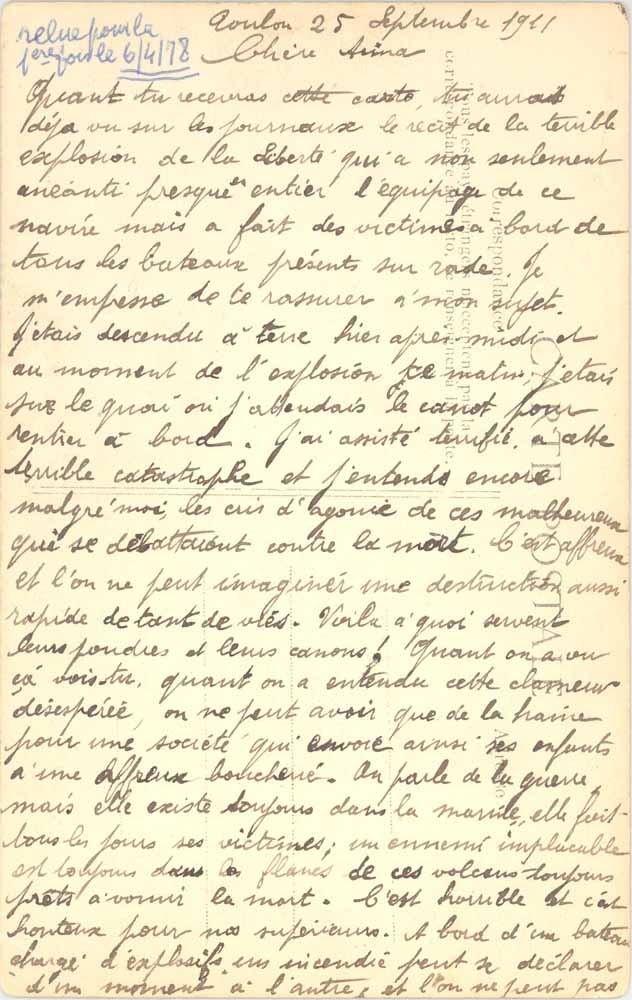 relue pour la
1ère fois le 6/4/78
Toulon 25 Septembre 1911
Chère Anna
Quant tu recevras cette carte, tu aurais
déja vu sur les journaux le récit de la terrible
explosion de la Liberté qui a non seulement
anéanti presque en entier l'équipage de ce
navire mais a fait des victimes à bord de
tous les bateaux présents sur rade. Je
m'empresse de te rassurer à mon sujet.
J'étais descendu à terre hier après-midi et
au moment de l'explosion ce matin, j'étais
sur le quai où j'attendais le canot pour
rentrer à bord. J'ai assisté terrifié, a cette
terrible catastrophe et j'entends encore
malgré moi, les cris d'agonie de ces malheureux
qui se débattaient contre la mort. C'est affreux
et l'on ne peut imaginer une destruction aussi
rapide de tant de viés. Voila à quoi servent
leurs poudres et leurs canons! Quant on a vu
çà vois-tu, quant on a entendu cette clameur
désespérée, on ne peut avoir que de la haine
pour une société qui envoie ainsi ses enfants
a une affreux boucherie. On parle de la guerre,
mais elle existe toujours dans la marine, elle fait
tous les jours ses victimes; un ennemi implacable
est toujours dans les flancs de ces volcans toujours
prêts à vomir la mort. C'est horrible et c'est
honteux pour nos supérieurs. A bord d'un bateau
chargé d'explosifs un incendie peut se déclarer
d'un moment à l'autre, et l'on ne peut pas
CARTE POSTALE
Correspondance